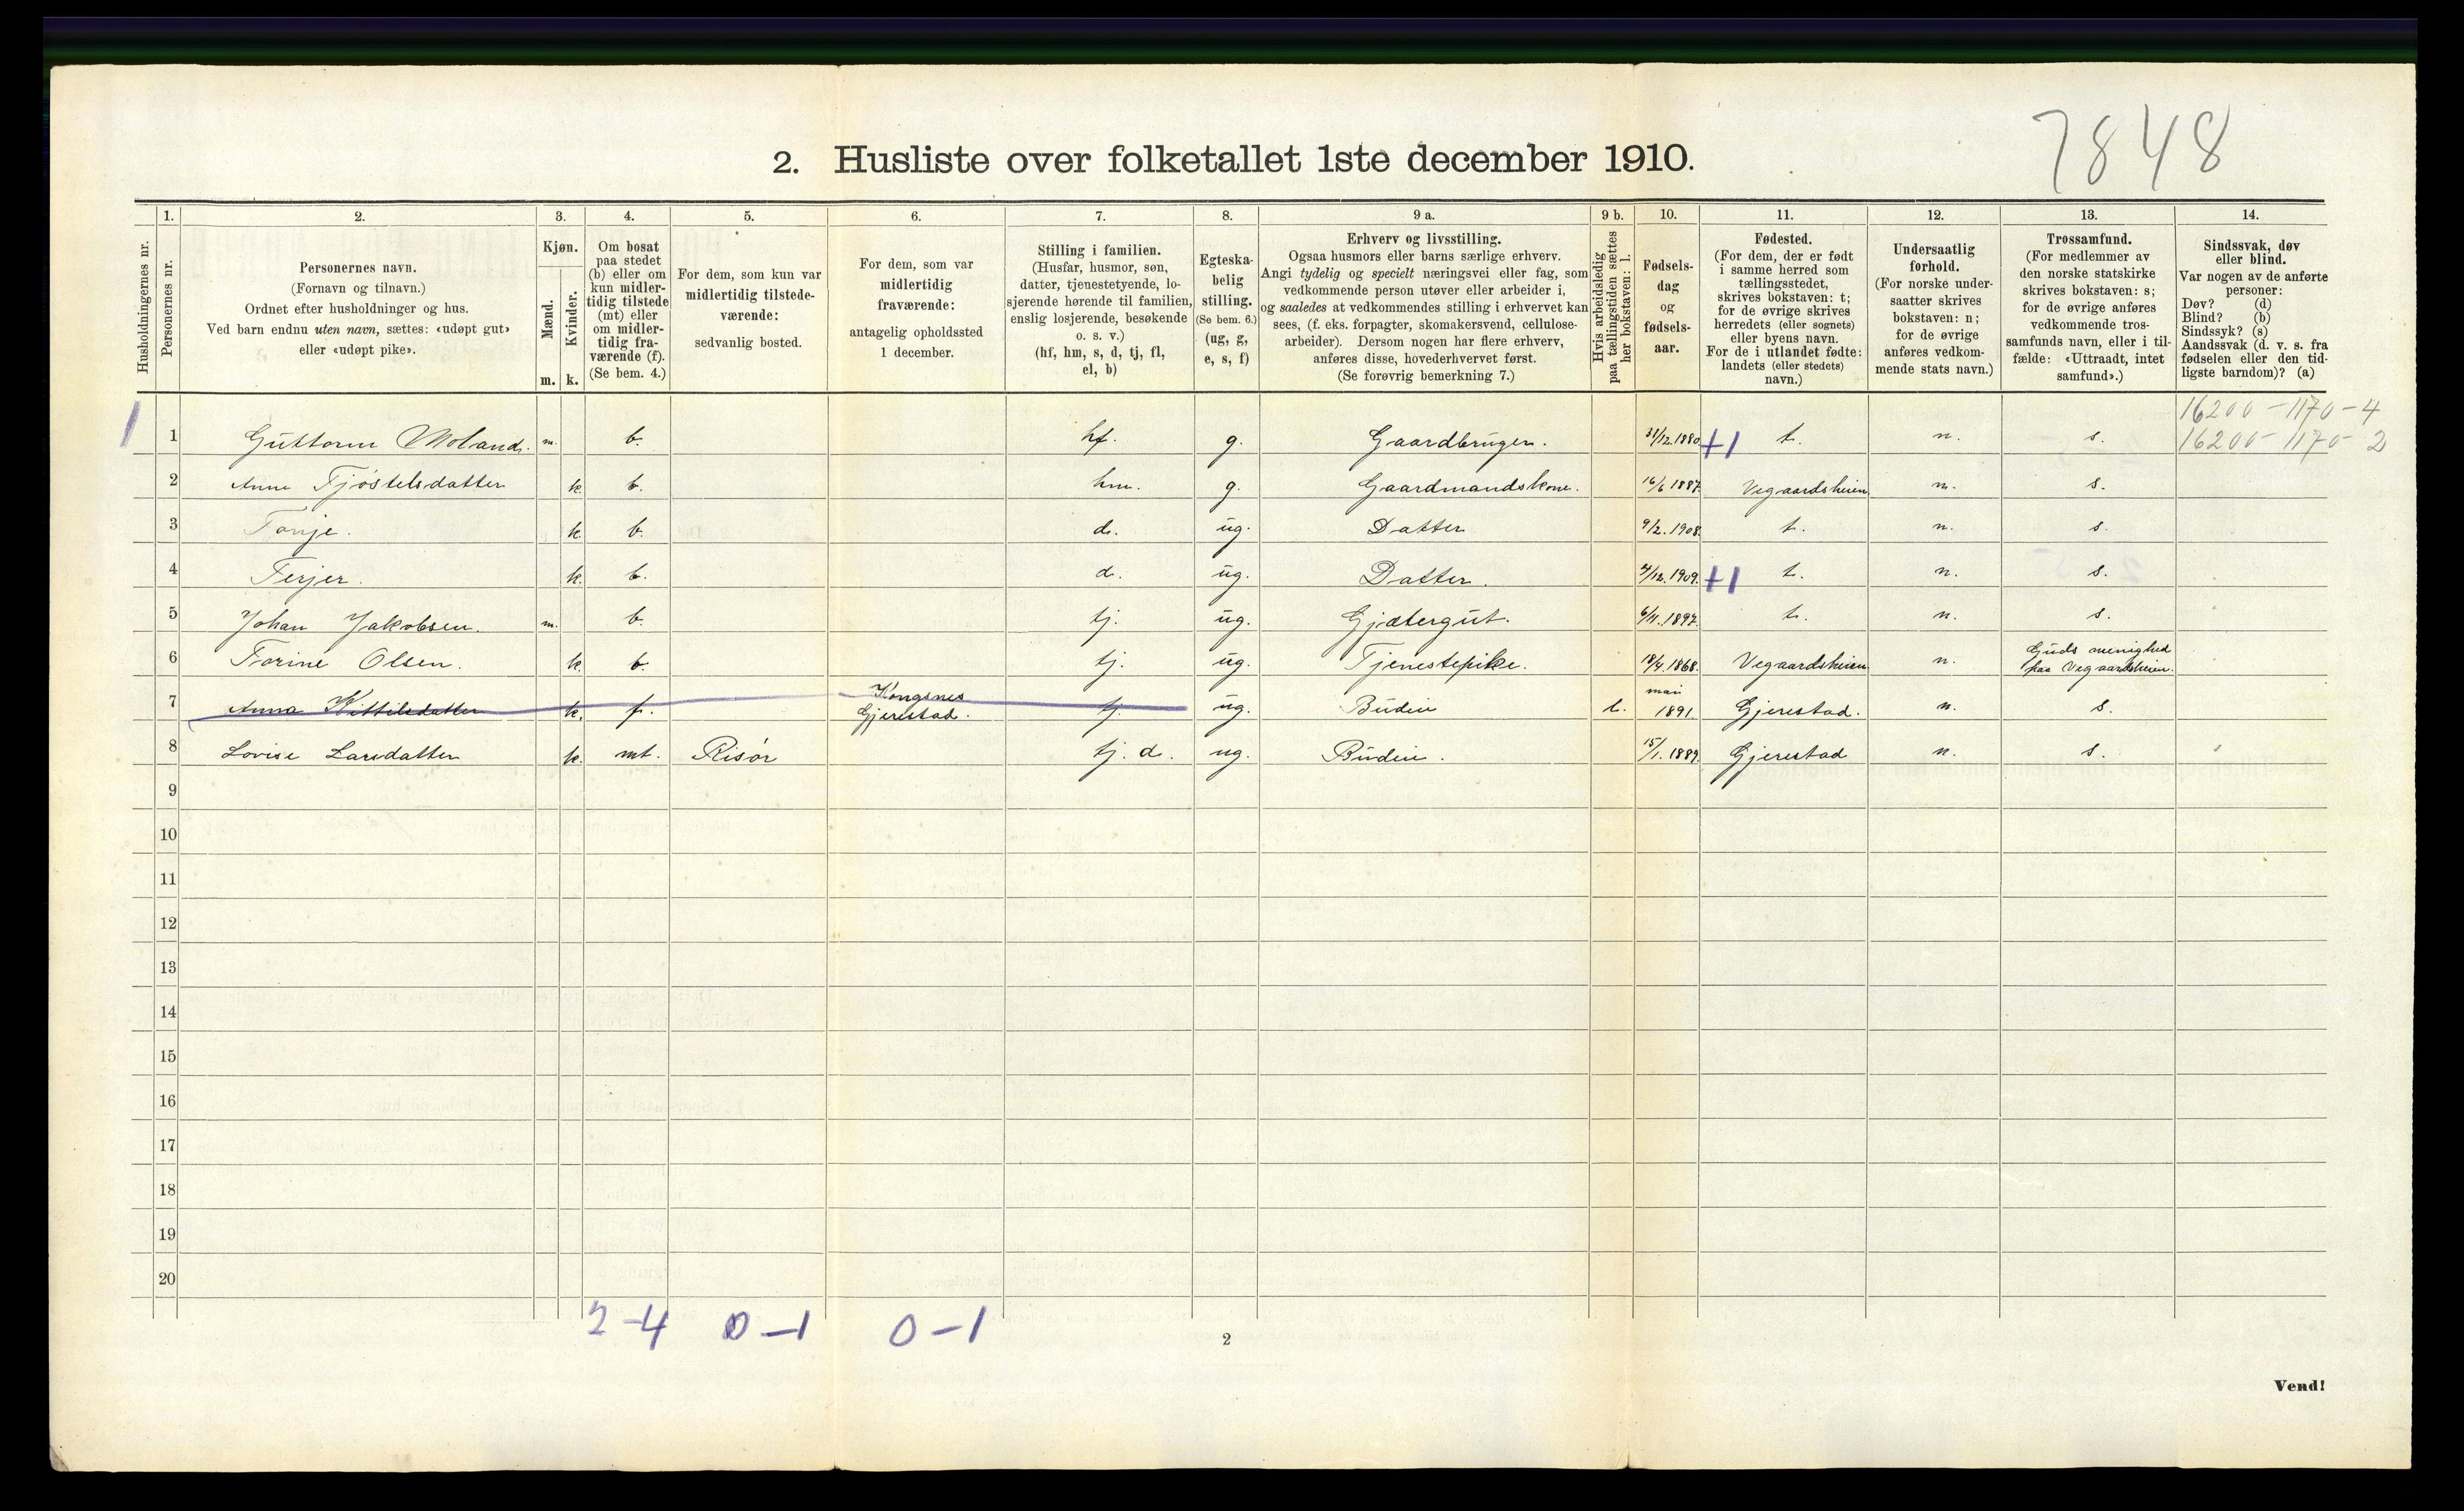 7848
2. Husliste over folketallet 1ste december 1910.
Husholdningernes nr.
1. Personernes nr.
2. Personernes navn.
(Fornavn og tilnavn.)
Ordnet efter husholdninger og hus.
Ved barn endnu uten navn, sættes: «udøpt gut»
eller «udøpt pike».
3. Kjøn.
Mænd. m.
Kvinder. k.
4. Om bosat
paa stedet
(b) eller om
kun midler-
tidig tilstede
(mt) eller
om midler-
tidig fra-
værende (f).
(Se bem. 4.)
5. For dem, som kun var
midlertidig tilstede-
værende:
sedvanlig bosted.
6. For dem, som var
midlertidig
fraværende:
antagelig opholdssted
1 december.
7. Stilling i familien.
(Husfar, husmor, søn,
datter, tjenestetyende, lo-
sjerende hørende til familien,
enslig losjerende, besøkende
o. s. v.)
(hf, hm, s, d, tj, fl,
el, b)
8. Egteska-
belig
stilling.
(Se bem. 6.)
(ug, g,
e, s, f)
9 a. Erhverv og livsstilling.
Ogsaa husmors eller barns særlige erhverv.
Angi tydelig og specielt næringsvei eller fag, som
vedkommende person utøver eller arbeider i,
og saaledes at vedkommendes stilling i erhvervet kan
sees, (f. eks. forpagter, skomakersvend, cellulose-
arbeider). Dersom nogen har flere erhverv,
anføres disse, hovederhvervet først.
(Se forøvrig bemerkning 7.)
9 b. Hvis arbeidsledig
paa tællingstiden sættes
her bokstaven: l.
10. Fødsels-
dag
og
fødsels-
aar.
11. Fødested.
(For dem, der er født
i samme herred som
tællingsstedet,
skrives bokstaven: t;
for de øvrige skrives
herredets (eller sognets)
eller byens navn.
For de i utlandet fødte:
landets (eller stedets)
navn.)
12. Undersaatlig
forhold.
(For norske under-
saatter skrives
bokstaven: n;
for de øvrige
anføres vedkom-
mende stats navn.)
13. Trossamfund.
(For medlemmer av
den norske statskirke
skrives bokstaven: s;
for de øvrige anføres
vedkommende tros-
samfunds navn, eller i til-
fælde: «Uttraadt, intet
samfund».)
14. Sindssvak, døv
eller blind.
Var nogen av de anførte
personer:
Døv? (d)
Blind? (b)
Sindssyk? (s)
Aandssvak (d. v. s. fra
fødselen eller den tid-
ligste barndom)? (a)
16200-1170-4
1 1 Guttorm Moland. m. b. hf. g. Gaardbruger. 31/12.1880 +1 t. n. s. 16200-1170-2
2 Anne Tjøstelsdatter k. b. hm. g. Gaardmandskone. 16/6 1887. Vegaardsheien n. s.
3 Tonje. k. b. d. ug. Datter 9/2.1908. t. n. s.
4 Terjer. k. b. d. ug. Datter. 4/12.1909. +1 t. n. s.
5 Johan Jakobsen. m. b. tj. ug. Gjætergut. 6/11.1897. t. n. s.
6 Torine Olsen. k. b. tj. ug. Tjenestepike. 18/4.1868. Vegaardsheien n. Guds menighed
paa Vegaardsheien.
7 Anna Kittilsdatter k. f. Kongsnes
Gjerestad. tj. ug. Budeie l. mai
1891. Gjerestad. n. s.
8 Lovise Larsdatter k. mt. Risør tj. d. ug. Budeie. 15/1.1889. Gjerestad n. s.
9
10
11
12
13
14
15
16
17
18
19
20
2-4 0-1 0-1
2
Vend!